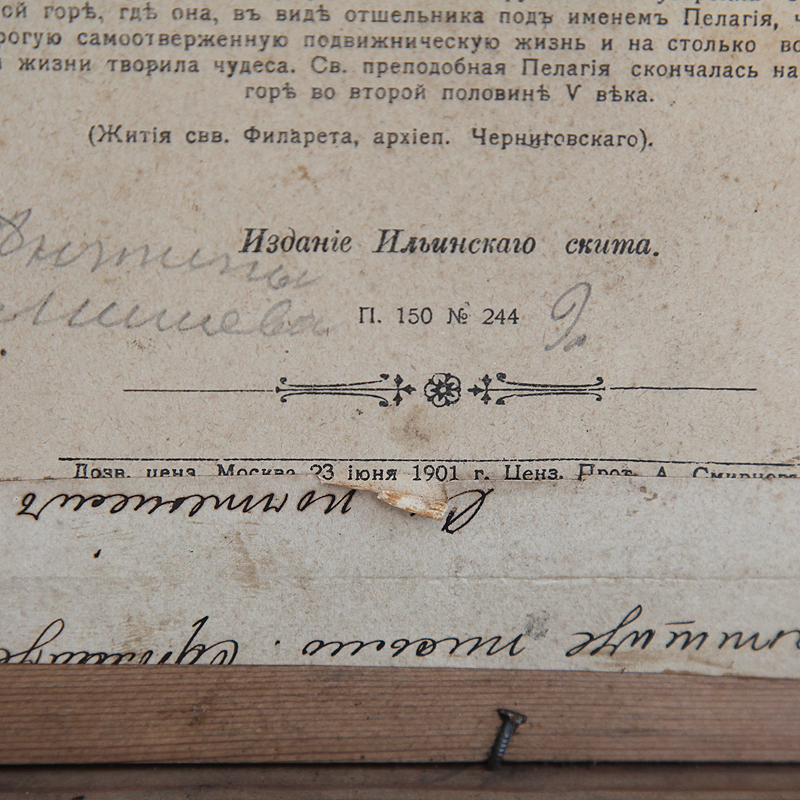 ой горѣ, гдѣ она, въ видѣ отшельника подъ именемъ Пелагія,
рогую самоотверженную подвижническую жизнь и на столько
жизни творила чудеса. Св. преподобная Пелагія скончалась на
горѣ во второй половинѣ V вѣка.
(Житія свв. Филарета, архіеп. Черниговскаго).
Изданіе Ильинскаго скита.
П. 150 № 244
Дозв. цена. Москва 23 іюня 1901 г. Ценз. Прот. А. Смирновъ
С почтеніемъ
письмо.